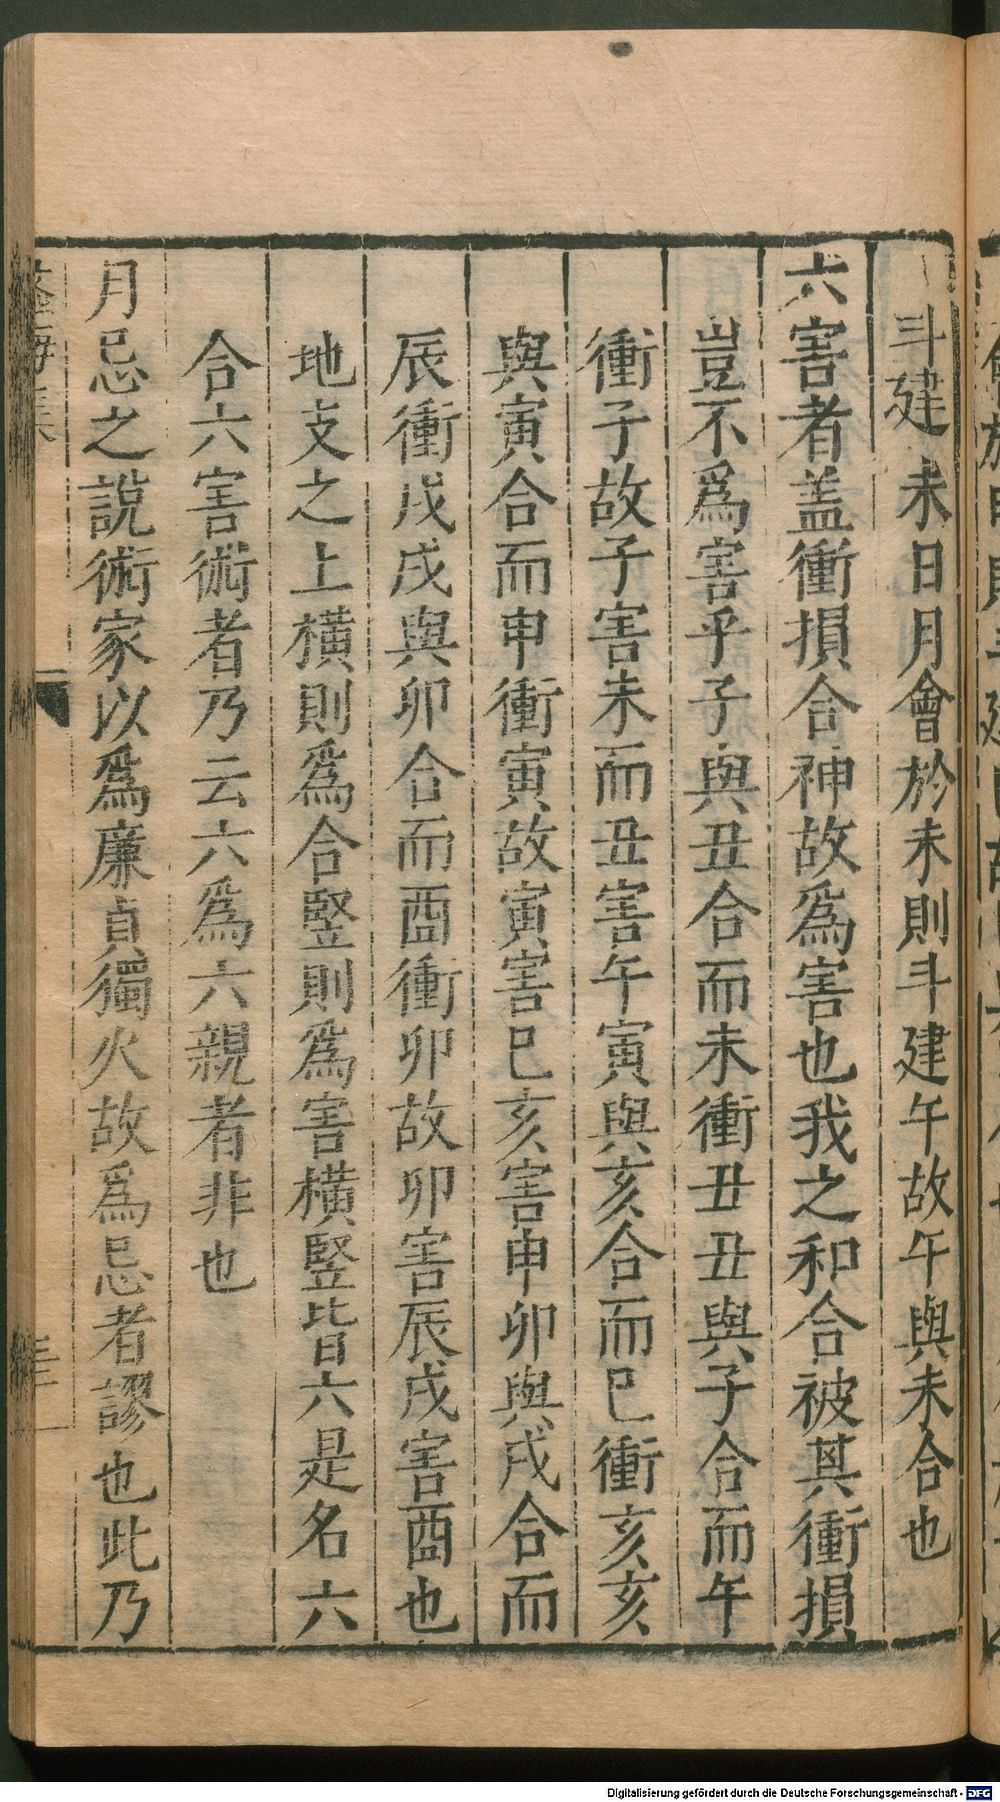 斗建未日月會於未則斗建午故午與未合也
六害者盖衝損合神故爲害也我之和合被其衝損
豈不爲害乎子與丑合而未衝丑丑與子合而午
衝子故子害未而丑害午寅與亥合而巳衝亥亥
與寅合而申衝寅故寅害巳亥害申卯與戌合而
辰衝戌戌與卯合而酉衝卯故卯害辰戌害酉也
地支之上橫則爲合竪則爲害橫竪皆六是名六
合六害術者乃云六爲六親者非也
月忌之說術家以爲廉貞獨火故爲忌者謬也此乃
Digitalisierung gefördert durch die Deutsche Forschungsgemeinschaft - DFG